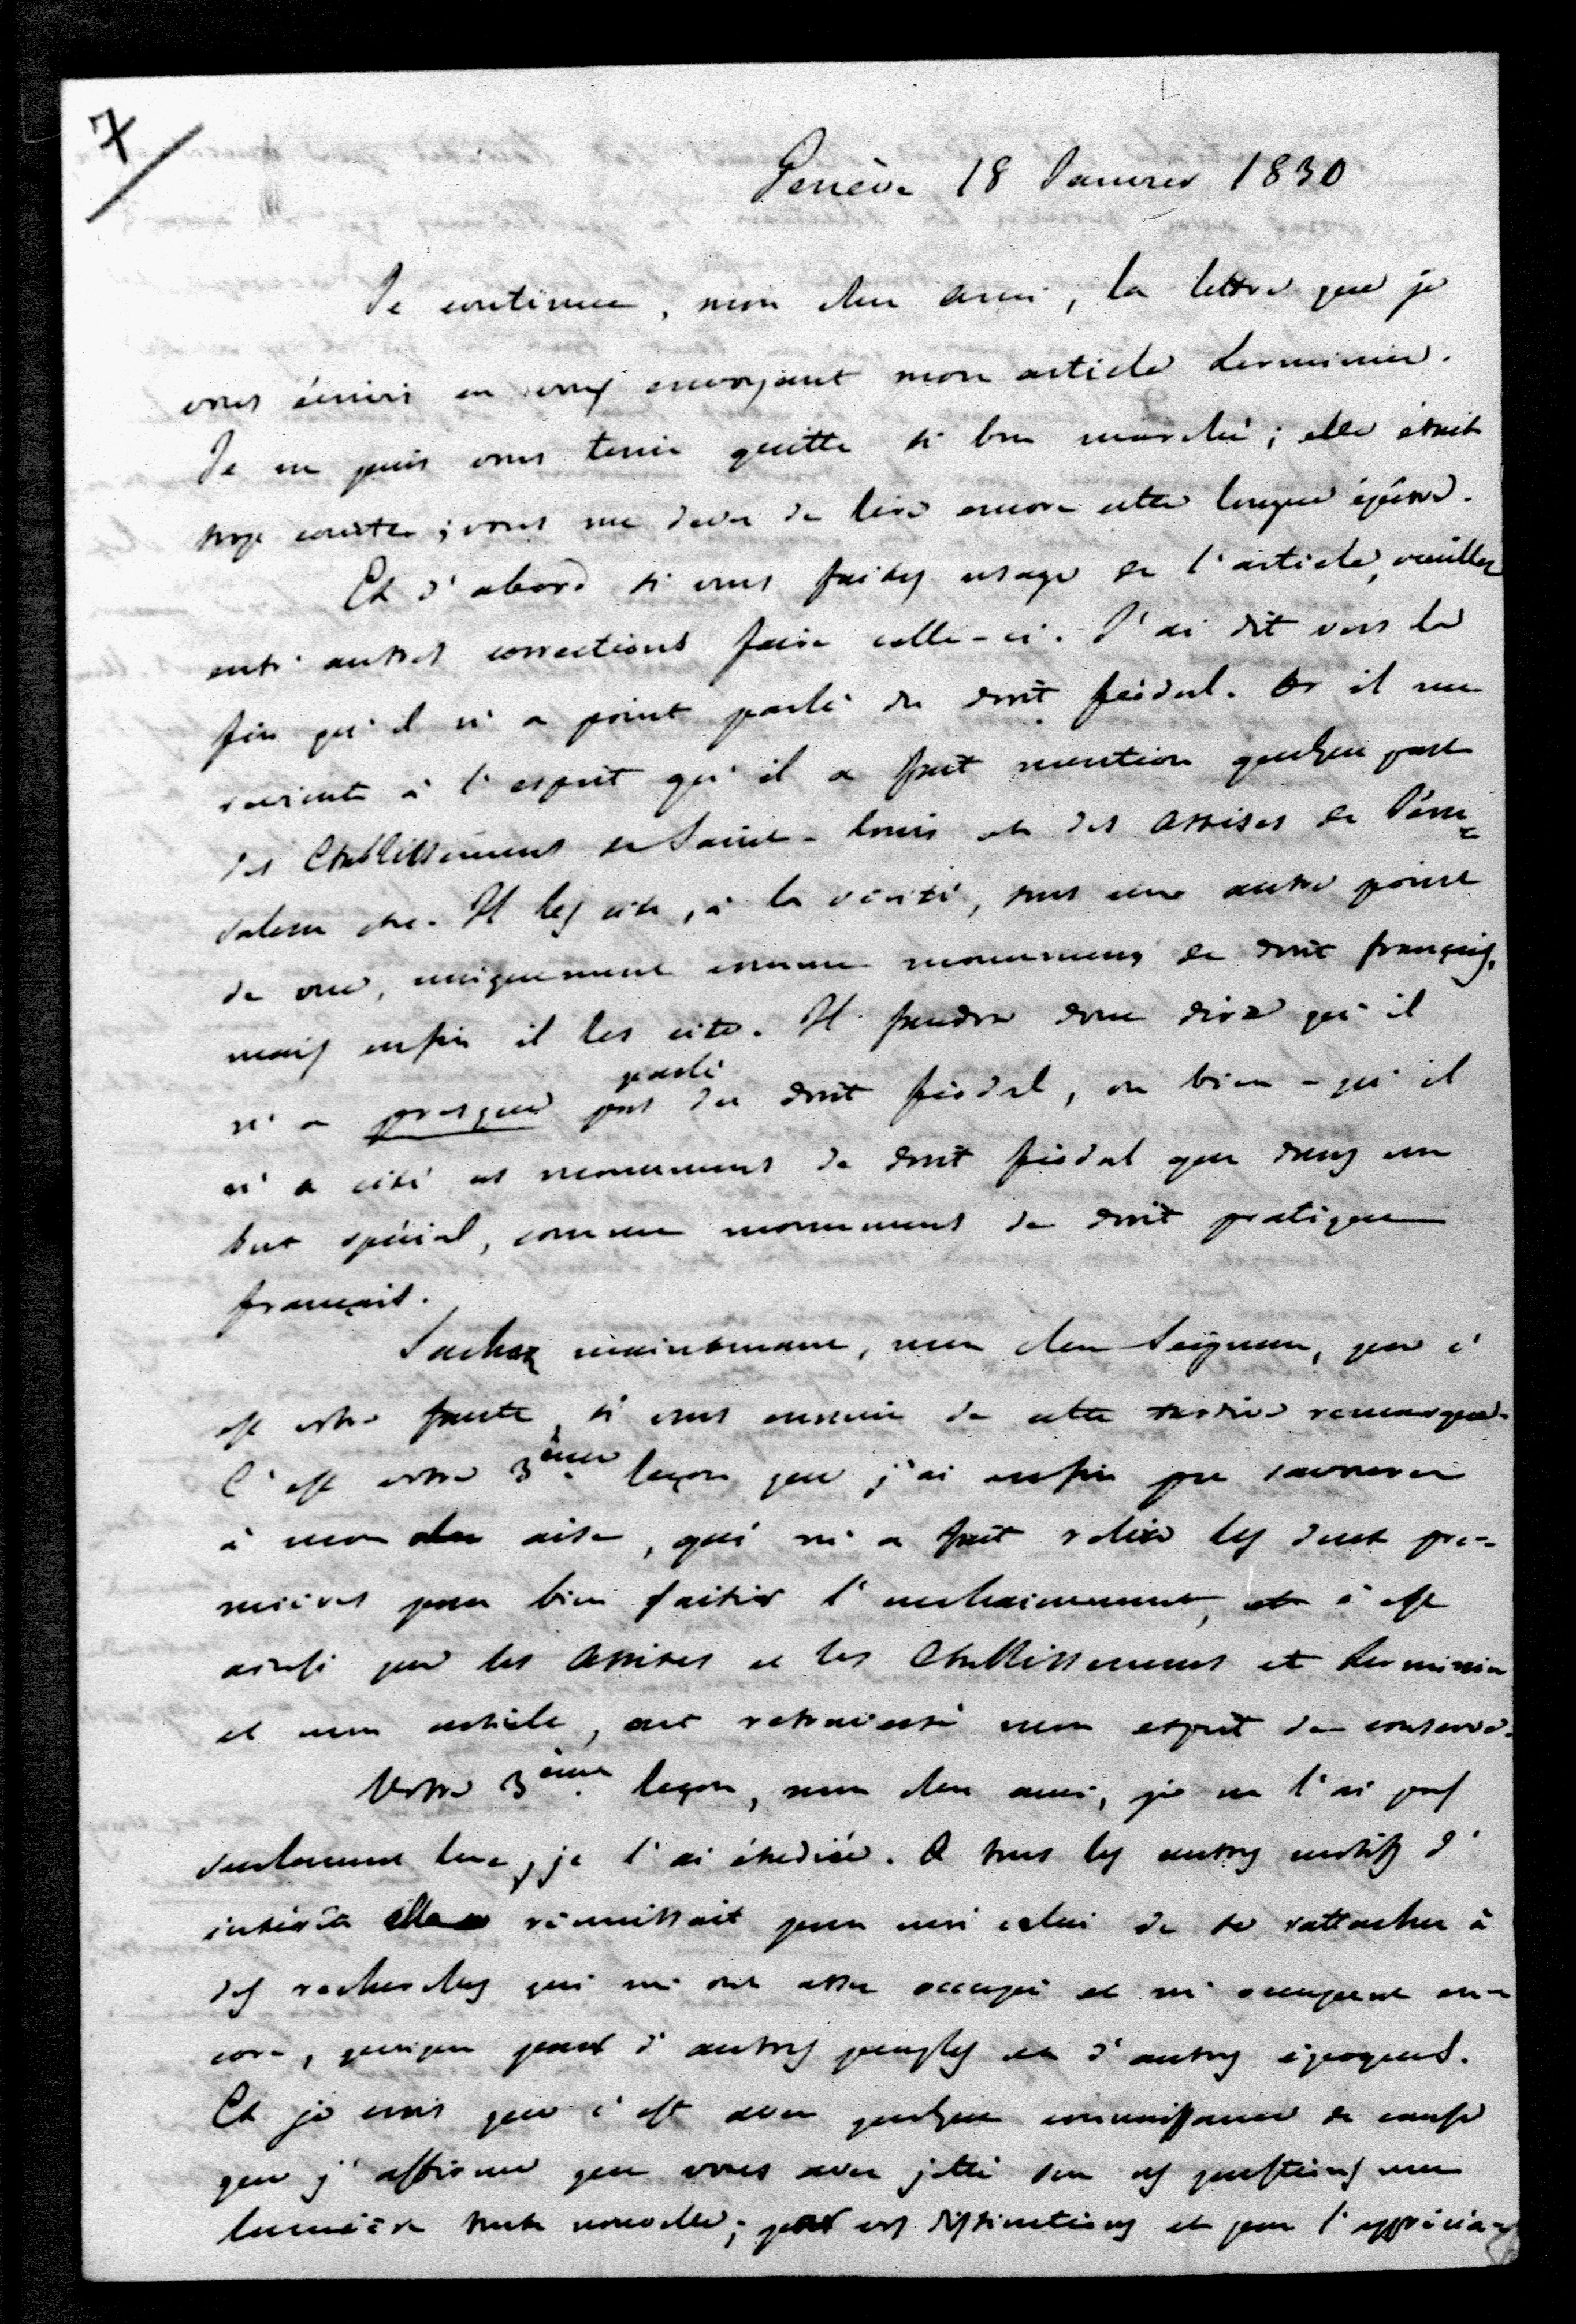 7
Genève 18 Janvier 1830
Je continue, mon cher ami, la lettre que je
vous écrivis en vous envoyant mon article Lerminier.
Je ne puis vous tenir quitte si bon marché; elle était
trop courte; vous me devez de lire encore cette longue épitre.
Et d'abord si vous faites usage de l'article, veuillez
entr'autres corrections faire celle-ci. J'ai dit vers la
fin qu'il n'a point parlé du droit féodal. Or il me
revient à l'esprit qu'il a fait mention quelque part
des Etablissemens de Saint-Louis et des Assises de Jéru=
salem etc. Il les cite, à la vérité, sous un autre point
de vue, uniquement comme monumens de droit français,
mais enfin il les cite. Il faudra donc dire qu'il
n'a presque pas parlé du droit féodal, ou bien - qu'il
n'a cité ces monumens de droit féodal que dans un
but spécial, comme monumens de droit pratique
français.
Sachez maintenant, mon cher Seigneur, que c'
est votre faute, si vous ennuie de cette tardive remarque.
C'est votre 3ème leçon que j'ai enfin pu savourer
à mon aise, qui m'a fait relire les deux pre-
mières pour bien saisir l'enchainement, et c'est
ainsi que les Assises et les Etablissemens et Lerminier
et mon article, ont retraversé mon esprit de conserve.
Votre 3ème leçon, mon cher ami, je ne l'ai pas
seulement lue, je l'ai étudiée. A tous les autres motifs d'
intérêt elle réunissait pour moi celui de se rattacher à
des recherches qui m'ont assez occupé et m'occupent en-
core, quoique pour d'autres peuples et d'autres époques.
Et je crois que c'est avec quelque connaissance de cause
que j'affirme que vous avez jetté sur ces questions une
lumière toute nouvelle; par vos distinctions et par l'apprécia-